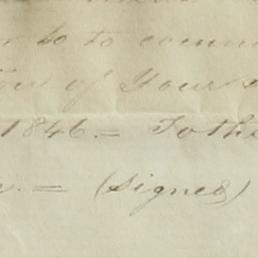 to to commu
of Your
1846. = To the
= (Signed)